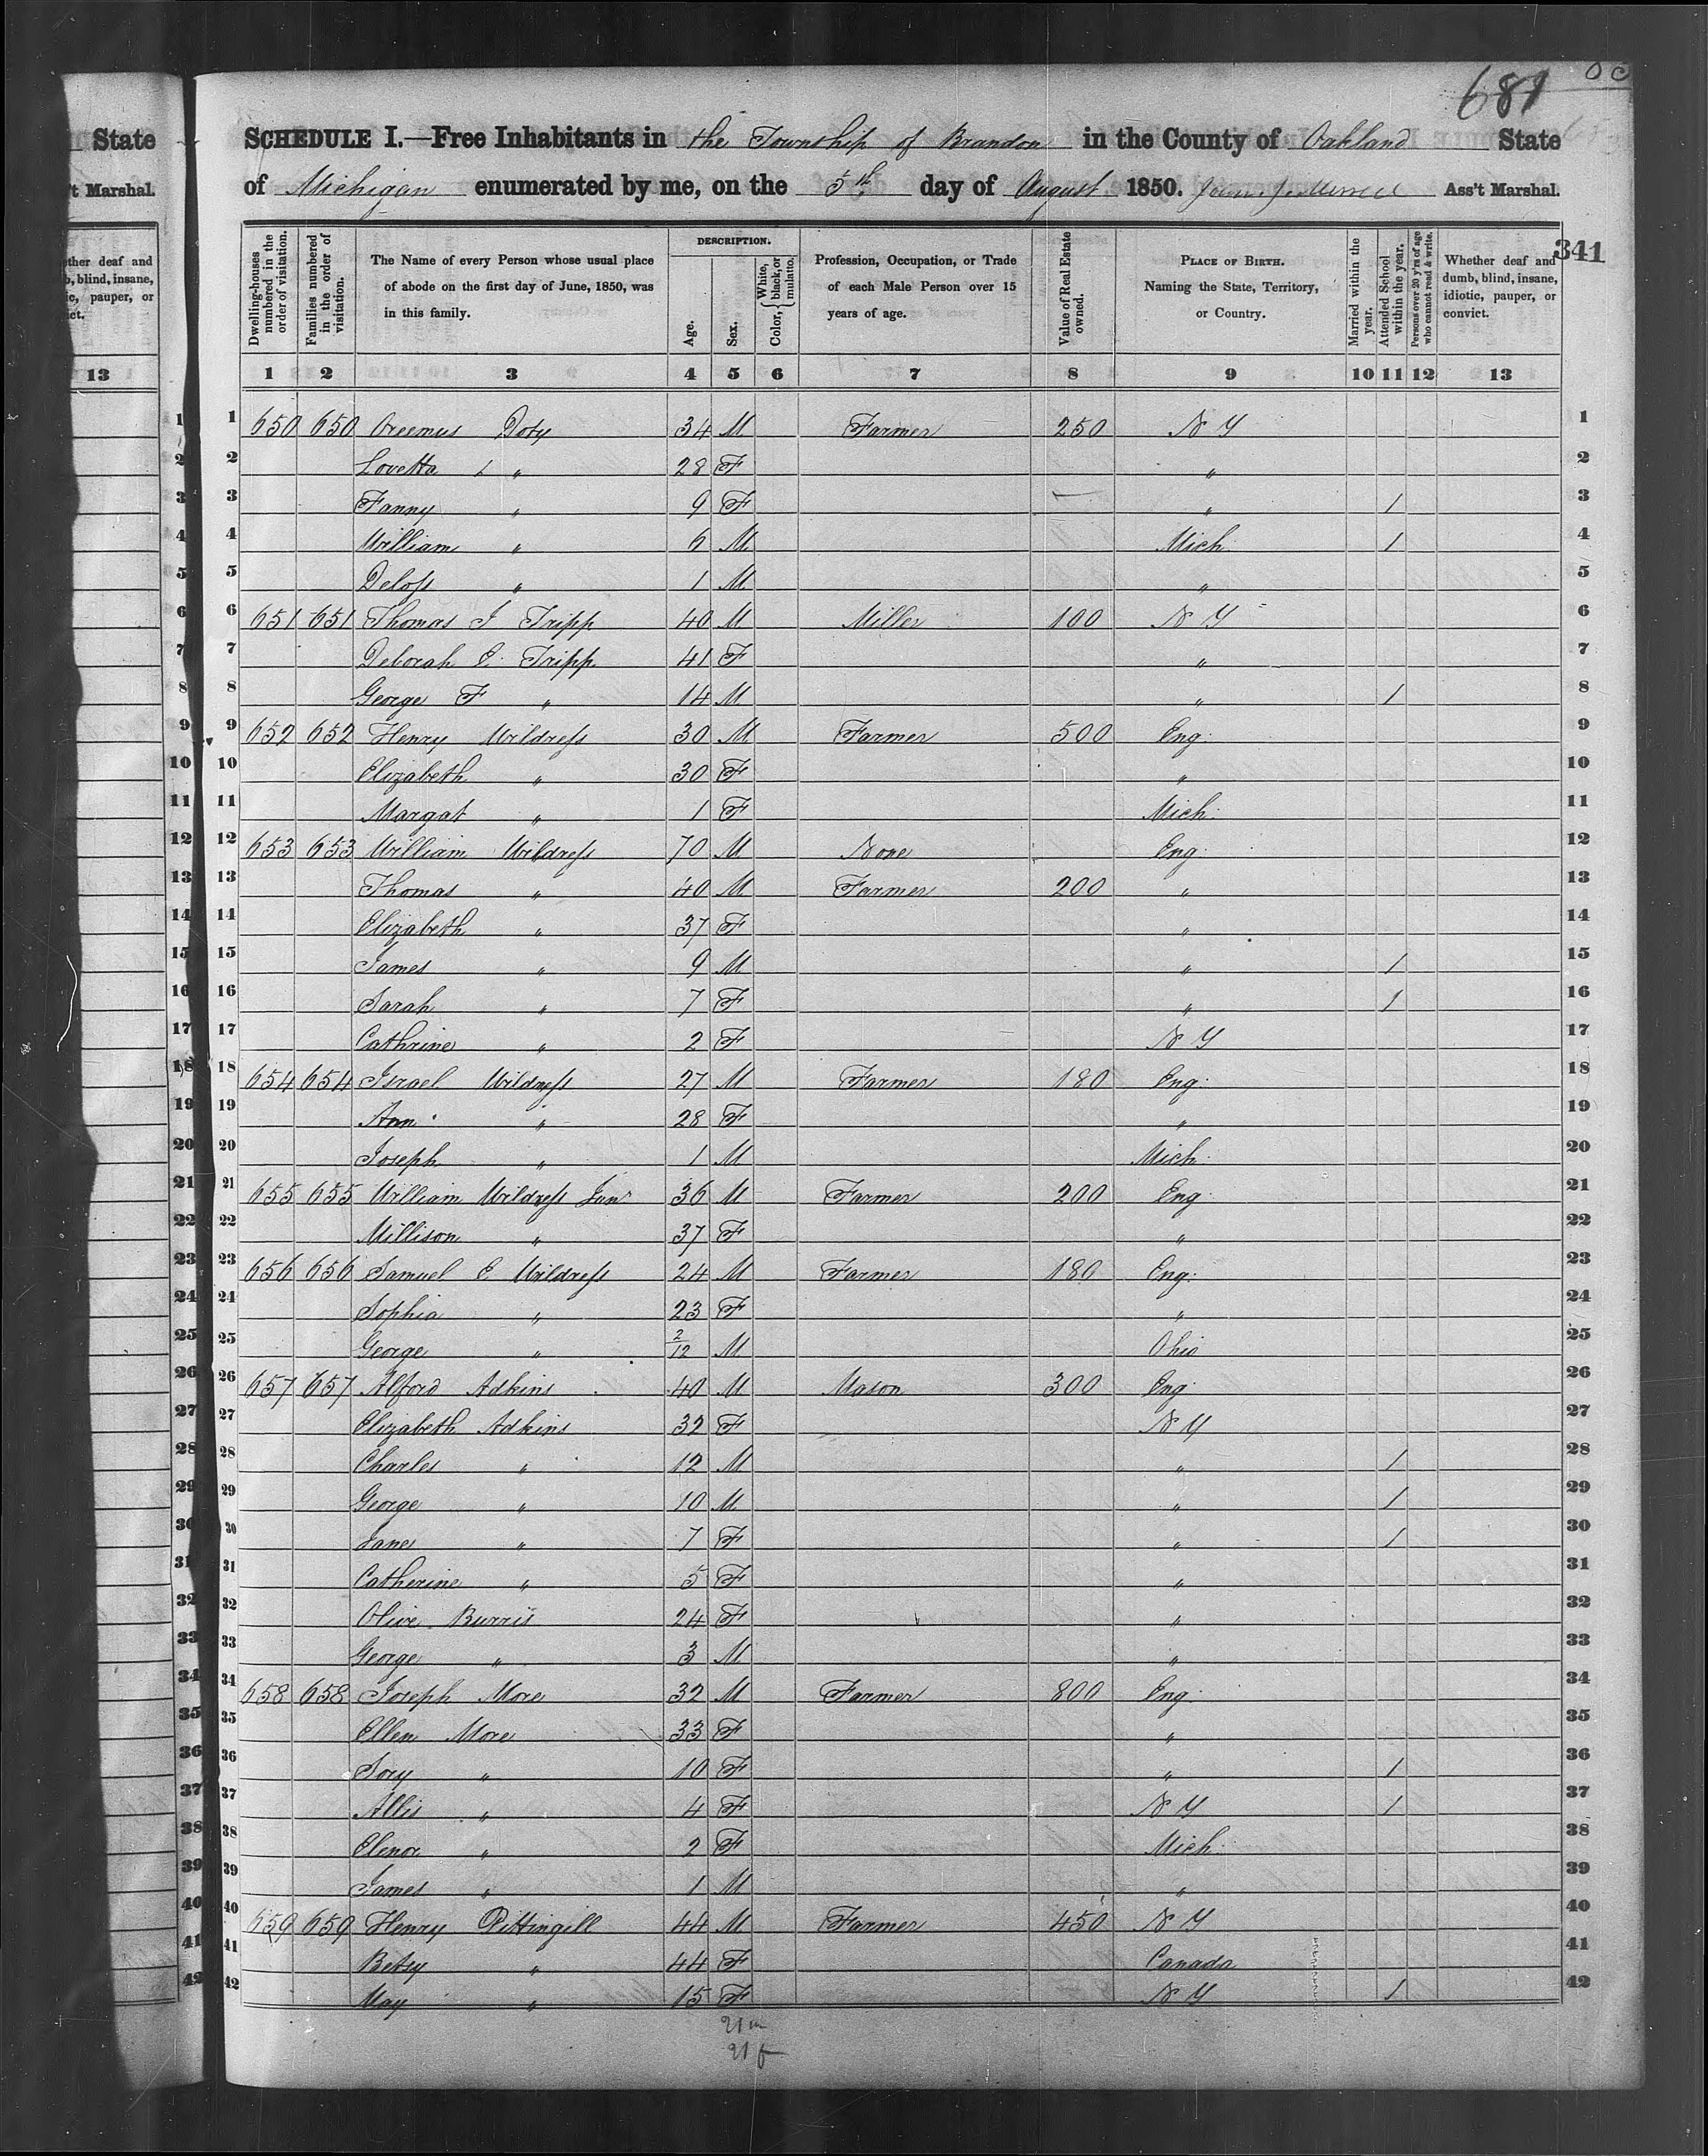 681
State
SCHEDULE I.—Free Inhabitants in the Township of Brandon in the County of Oakland State
't Marshal.
of Michigan enumerated by me, on the 5th day of August 1850. Ass't Marshal.
341
Dwelling-houses numbered in the order of visitation.
Families numbered in the order of visitation.
The Name of every Person whose usual place of abode on the first day of June, 1850, was in this family.
DESCRIPTION.
Age.
Sex.
Color, { White, black, or mulatto.
Profession, Occupation, or Trade of each Male Person over 15 years of age.
Value of Real Estate owned.
PLACE OF BIRTH. Naming the State, Territory, or Country.
Married within the year.
Attended School within the year.
Persons over 20 y'rs of age who cannot read & write.
Whether deaf and dumb, blind, insane, idiotic, pauper, or convict.
13 1 2 3 4 5 6 7 8 9 10 11 12 13
1 650 650 Oreemus Doty 34 M Farmer 250 N Y 1
2 Lovetta L " 28 F " 2
3 Fanny " 9 F " 1 3
4 William " 6 M Mich 1 4
5 Deloss " 1 M " 5
6 651 651 Thomas J Tripp 40 M Miller 100 N Y 6
7 Deborah E. Tripp 41 F " 7
8 George F " 14 M " 1 8
9 652 652 Henry Wildress 30 M Farmer 500 Eng. 9
10 Elizabeth " 30 F " 10
11 Margat " 1 F Mich. 11
12 653 653 William Wildress 70 M None Eng. 12
13 Thomas " 40 M Farmer 200 " 13
14 Elizabeth " 37 F " 14
15 James " 9 M " 1 15
16 Sarah " 7 F " 1 16
17 Cathrine " 2 F N Y 17
18 654 654 Israel Wildress 27 M Farmer 180 Eng. 18
19 Ann " 28 F " 19
20 Joseph " 1 M Mich. 20
21 655 655 William Wildress Junr 36 M Farmer 200 Eng 21
22 Millison " 37 F " 22
23 656 656 Samuel E Wildress 24 M Farmer 180 Eng. 23
24 Sophia " 23 F " 24
25 George " 2/12 M Ohio 25
26 657 657 Alford Adkins 40 M Mason 300 Eng 26
27 Elizabeth Adkins 32 F N Y 27
28 Charles " 12 M " 1 28
29 George " 10 M " 1 29
30 Jane " 7 F " 1 30
31 Catherine " 5 F " 31
32 Olive Burris 24 F " 32
33 George " 3 M " 33
34 658 658 Joseph More 32 M Farmer 800 Eng 34
35 Ellen More 33 F " 35
36 Sory " 10 F " 1 36
37 Allis " 4 F N Y 1 37
38 Elenor " 2 F Mich. 38
39 James " 1 M " 39
40 659 659 Henry Pettingill 44 M Farmer 450 N Y 40
41 Betsy " 44 F Canada 41
42 May " 15 F N Y 1 42
21 m
21 f